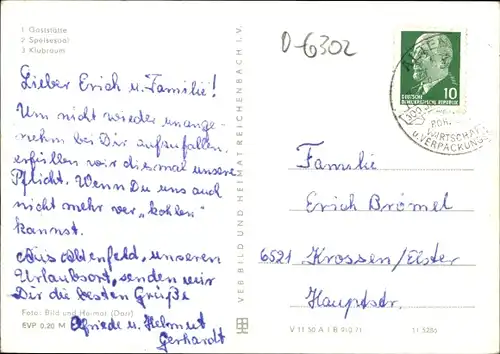 1 Gaststätte
2 Speisesaal
3 Klubraum
D-6302
Lieber Erich u. Familie!
Um nicht wieder unange-
nehm bei Dir aufzufallen,
erfüllen wir diesmal unsere
Pflicht. Wenn Du uns auch
nicht mehr ver„kohlen"
kannst.
Aus Altenfeld, unseren
Urlaubsort, senden wir
Dir die besten Grüße
Foto: Bild und Heimat (Darr)
EVP 0.20 M
Elfriede u. Helmut
Gerhardt
VEB BILD UND HEIMAT REICHENBACH I. V.
10
DEUTSCHE
DEMOKRATISCHE REPUBLIK
WIRTSCHAFT
U. VERPACKUNGS
Familie
Erich Brömel
6521 Krossen/Elster
Hauptstr.
V 11 50 A 1 B 910/71